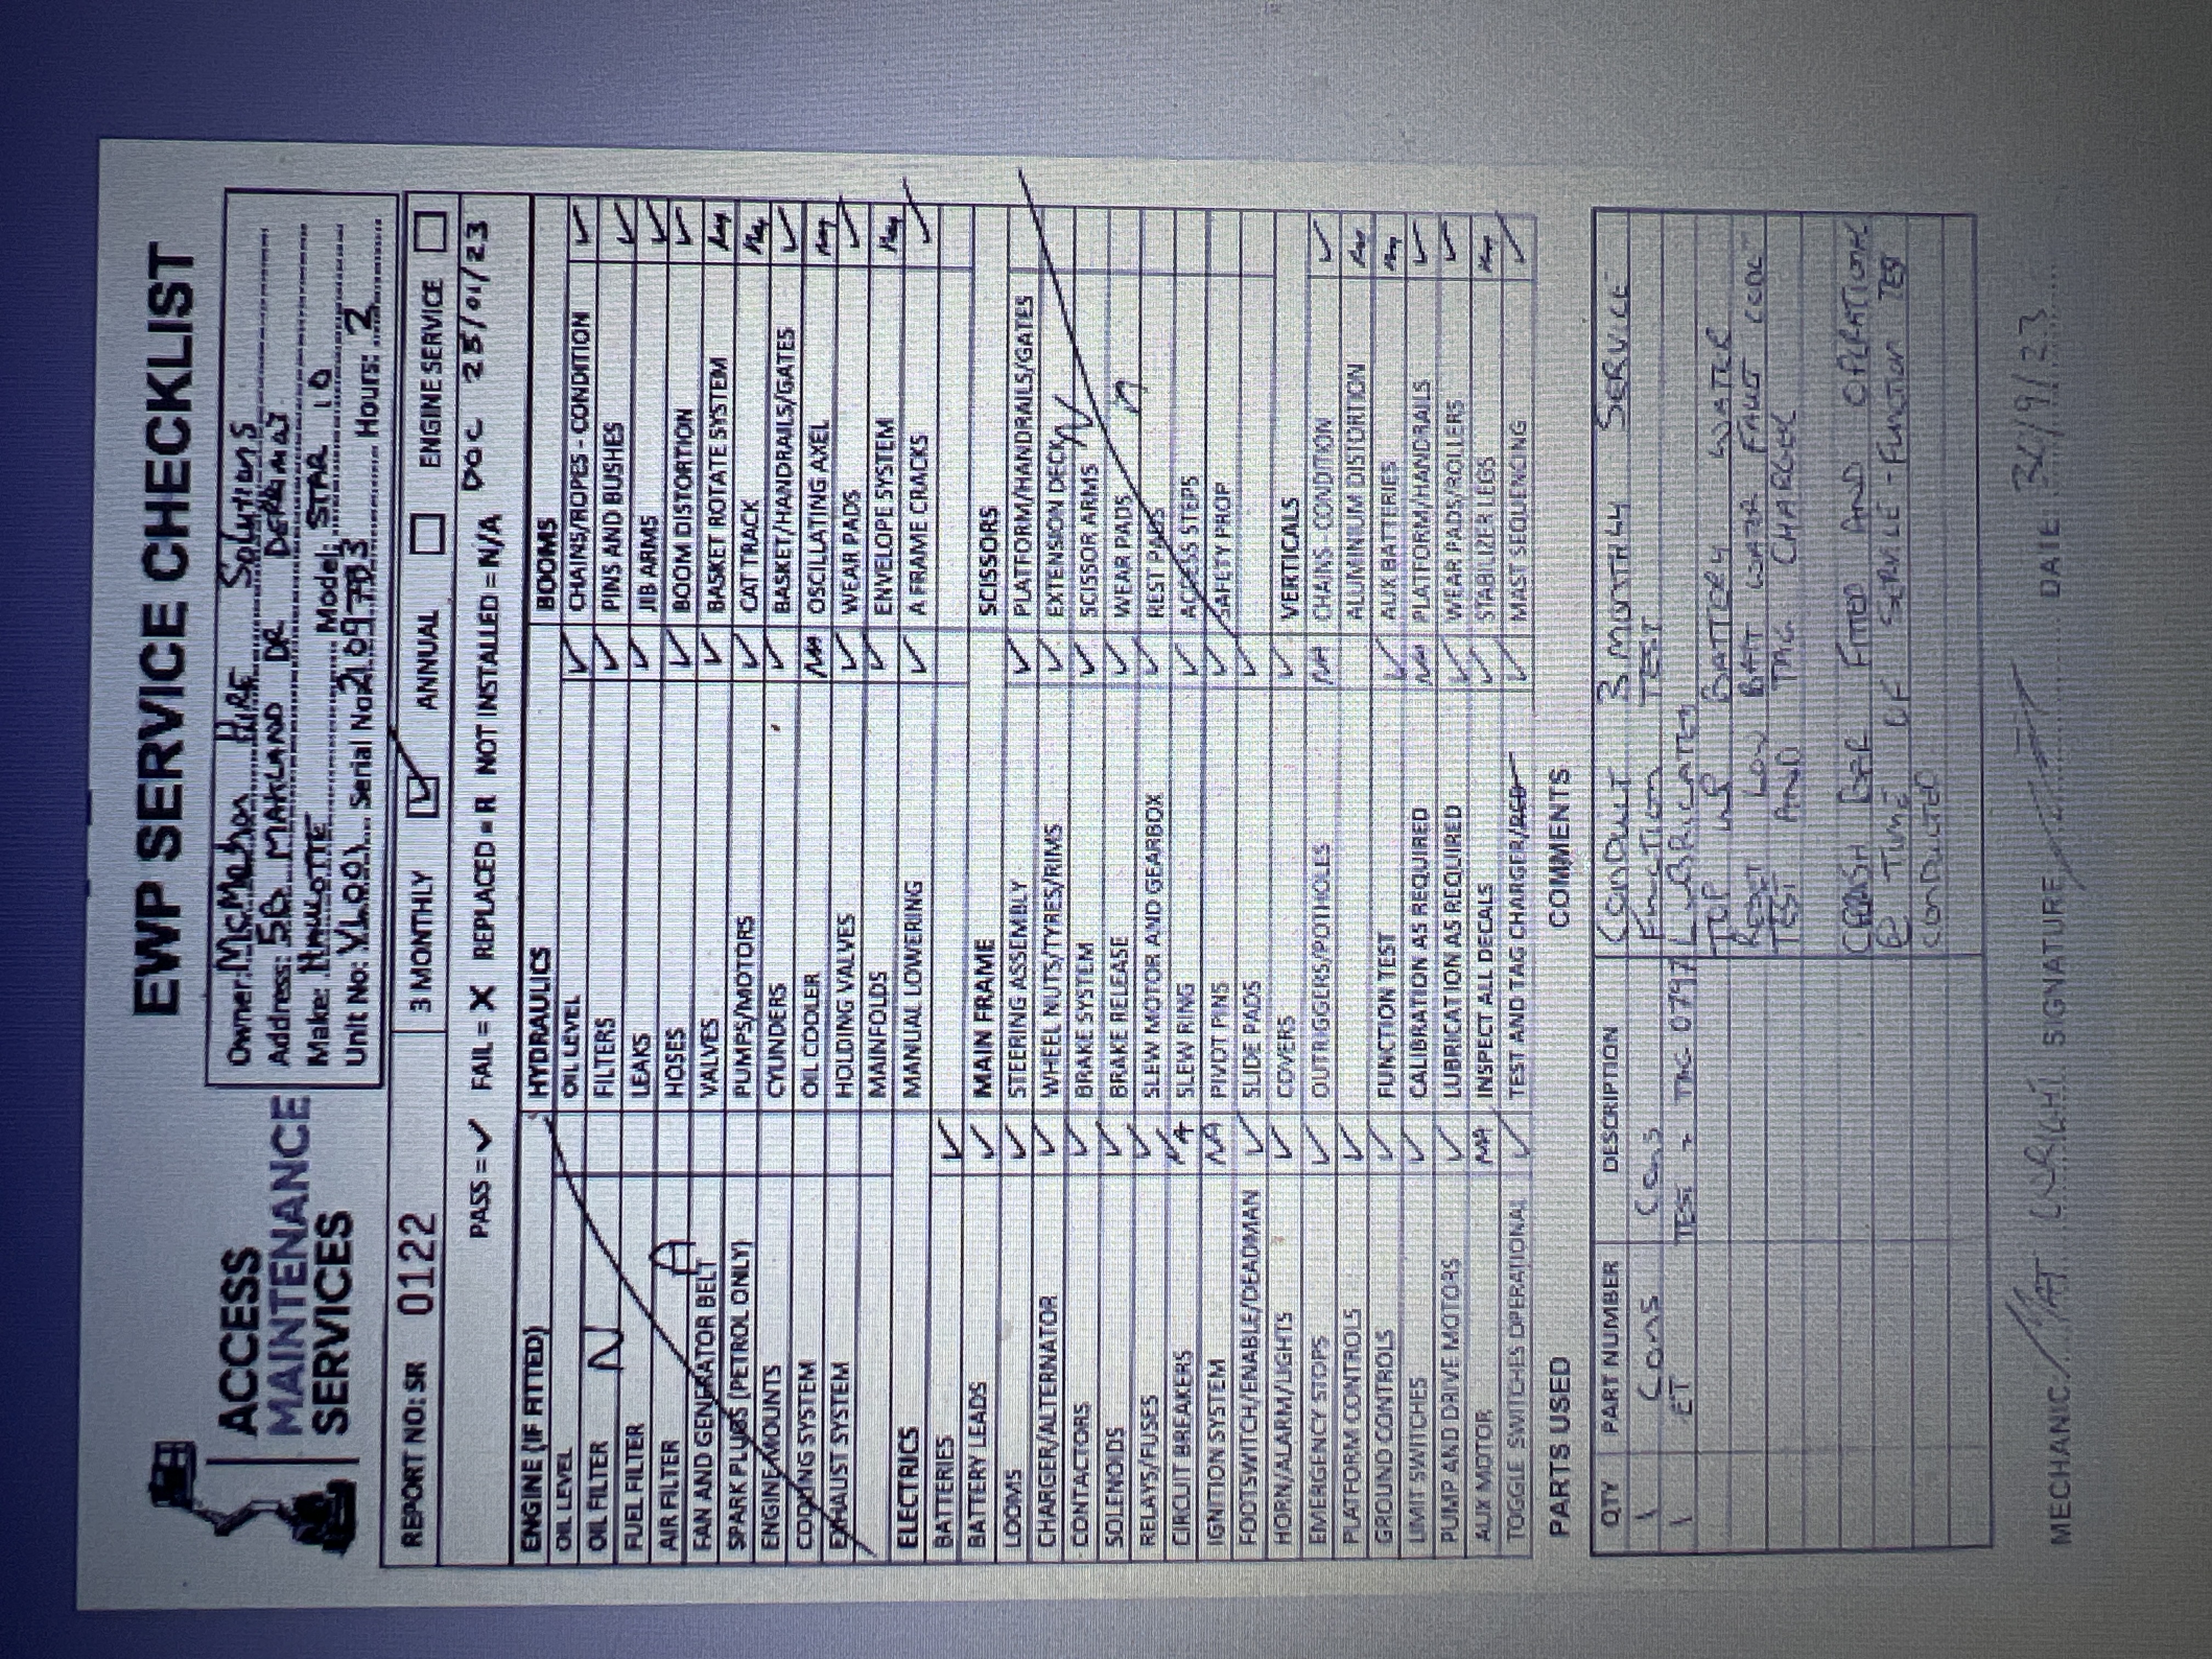 EWP SERVICE CHECKLIST
ACCESS
MAINTENANCE
SERVICES
Owner: McMahon Hire Solutions
Address: 5B MARLAND DR DERRIMUT
Make: HAULOTTE Model: STAR 10
Unit No: VL001 Serial No: Hours: 2
REPORT NO: SR 0122
3 MONTHLY ✓ ANNUAL ENGINE SERVICE
PASS = ✓ FAIL = X REPLACED = R NOT INSTALLED = N/A DOC 25/01/23
ENGINE (IF FITTED)
OIL LEVEL
OIL FILTER N
FUEL FILTER
AIR FILTER A
FAN AND GENERATOR BELT
SPARK PLUGS (PETROL ONLY)
ENGINE MOUNTS
COOLING SYSTEM
EXHALIST SYSTEM
ELECTRICS
BATTERIES ✓
BATTERY LEADS ✓
LOOMS ✓
CHARGER/ALTERNATOR ✓
CONTACTORS ✓
SOLENOIDS ✓
RELAYS/FUSES ✓
CIRCUIT BREAKERS NA
IGNITION SYSTEM NA
FOOTSWITCH/ENABLE/DEADMAN ✓
HORN/ALARM/LIGHTS ✓
EMERGENCY STOPS ✓
PLATFORM CONTROLS ✓
GROUND CONTROLS ✓
LIMIT SWITCHES ✓
PUMP AND DRIVE MOTORS ✓
AUX MOTOR NA
TOGGLE SWITCHES OPERATIONAL ✓
HYDRAULICS
OIL LEVEL ✓
FILTERS ✓
LEAKS ✓
HOSES ✓
VALVES ✓
PUMPS/MOTORS ✓
CYLINDERS ✓
OIL COOLER NA
HOLDING VALVES ✓
MAINFOLDS ✓
MANUAL LOWERING ✓
MAIN FRAME
STEERING ASSEMBLY ✓
WHEEL NUTS/TYRES/RIMS ✓
BRAKE SYSTEM ✓
BRAKE RELEASE ✓
SLEW MOTOR AND GEARBOX ✓
SLEW RING ✓
PIVOT PINS ✓
SLIDE PADS ✓
COVERS ✓
OUTRIGGERS/POTHOLES NA
FUNCTION TEST ✓
CALIBRATION AS REQUIRED NA
LUBRICATION AS REQUIRED ✓
INSPECT ALL DECALS ✓
TEST AND TAG CHARGER/RCD ✓
BOOMS
CHAINS/ROPES - CONDITION ✓
PINS AND BUSHES ✓
JIB ARMS ✓
BOOM DISTORTION ✓
BASKET ROTATE SYSTEM NA
CAT TRACK NA
BASKET/HANDRAILS/GATES ✓
OSCILLATING AXEL NA
WEAR PADS ✓
ENVELOPE SYSTEM NA
A FRAME CRACKS ✓
SCISSORS
PLATFORM/HANDRAILS/GATES
EXTENSION DECK
SCISSOR ARMS N
WEAR PADS
REST PADS
ACCESS STEPS
SAFETY PROP
VERTICALS
CHAINS - CONDITION ✓
ALUMINIUM DISTORTION NA
AUX BATTERIES NA
PLATFORM/HANDRAILS ✓
WEAR PADS/ROLLERS ✓
STABILIZER LEGS NA
MAST SEQUENCING ✓
PARTS USED
QTY PART NUMBER DESCRIPTION
1 Cons Cons
1 ET TEST + TAG
COMMENTS
CONDUCT 3 MONTHLY SERVICE
FUNCTION TEST
LUBRICATED
TOP UP BATTERY WATER
RESET LOW BATT WATER FAULT CODE
TEST AND TAG CHARGER
CRASH BAR FITTED AND OPERATIONAL
@ TIME OF SERVICE - FUNCTION TEST
CONDUCTED
MECHANIC MAT WRIGHT SIGNATURE DATE